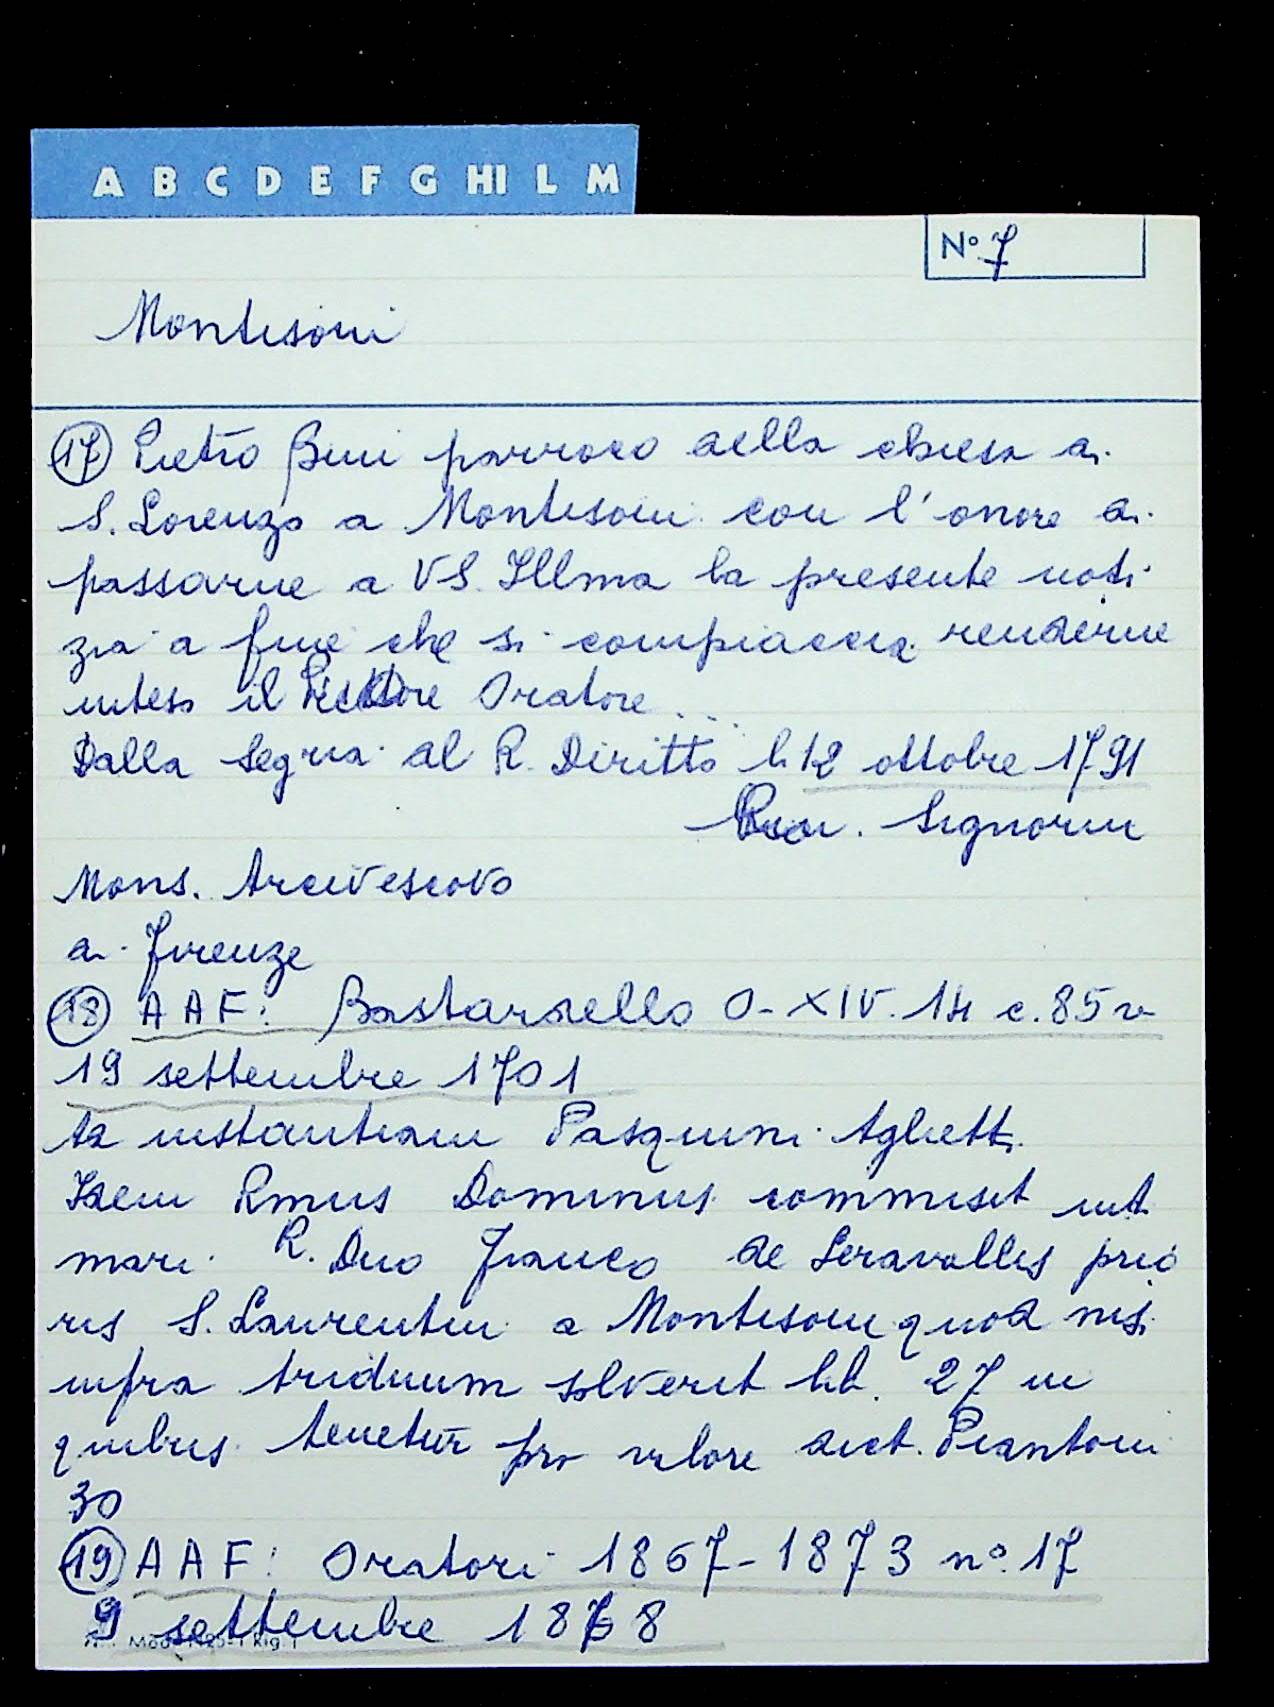 A B C D E F G HI L M
N° 7
Montisoni
17 Pietro Bini parroco della chiesa di
S. Lorenzo a Montisoni con l'onore di
passarne a VS. Illma la presente noti
zia a fine che si compiaccia renderne
inteso il Oratore...
Dalla Segria al R. Diritto li 12 ottobre 1791
Signorini
Mons. Arcivescovo
di Firenze
18 AAF: Bastardello O-XIV. 14 c. 85 v
19 settembre 1701
Ad instantiam Pasquini Aglietti
Idem Rmus Dominus commisit inti
mari R. Dno Franco de Seravallis prio
ris S. Laurentii a Montisoni quod nisi
infra triduum solverit lib. 27 in
quibus tenetur pro valore dict. Piantoni
30
19 AAF: Oratori 1867-1873 n° 17
9 settembre 1868